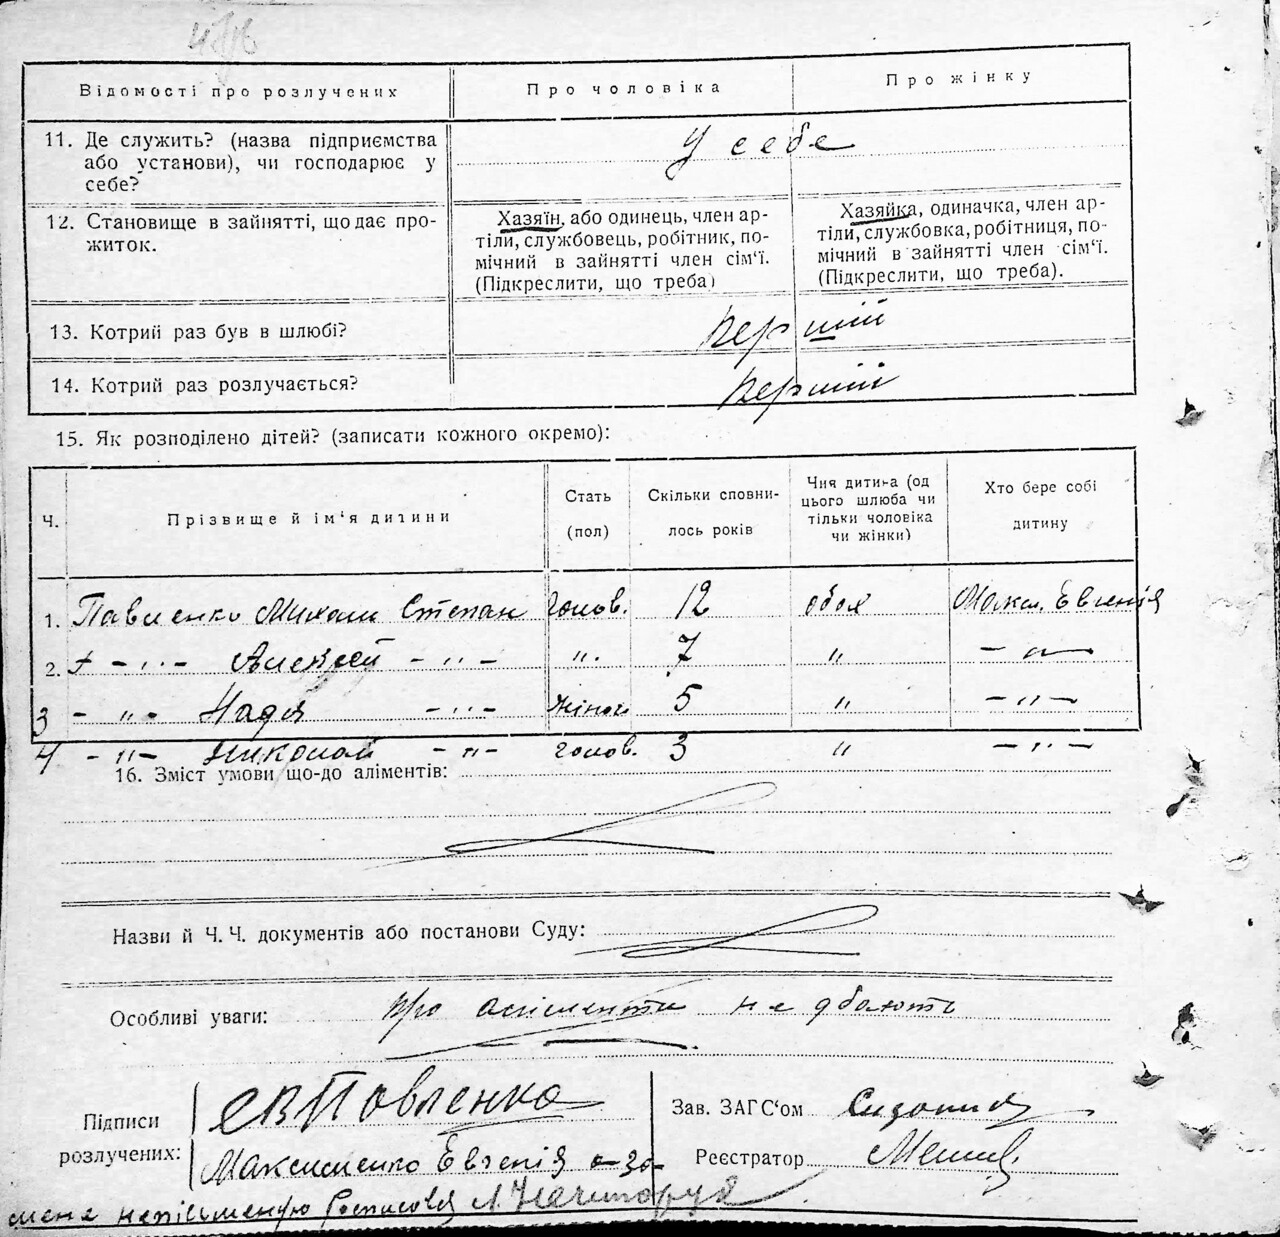 Відомості про розлучених Про чоловіка Про жінку
11. Де служить? (назва підприємства
або установи), чи господарює у
себе?
У себе
12. Становище в зайнятті, що дає про-
житок.
Хазяїн, або одинець, член ар-
тіли, службовець, робітник, по-
мічний в зайнятті член сім'ї.
(Підкреслити, що треба)
Хазяйка, одиначка, член ар-
тіли, службовка, робітниця, по-
мічний в зайнятті член сім'ї.
(Підкреслити, що треба).
13. Котрий раз був в шлюбі? перший
14. Котрий раз розлучається? перший
15. Як розподілено дітей? (записати кожного окремо):
Ч. Прізвище й ім'я дитини
Стать
(пол)
Скільки сповни-
лось років
Чия дитина (од
цього шлюба чи
тільки чоловіка
чи жінки)
Хто бере собі
дитину
1. Павленко Михаил Степан чолов. 12 обох Макси. Евгенія
2. - " - Алексей - " - ". 7 " - " -
3 - " - Надія - " - жіноч. 5 " - " -
4 - " - Николай - " - чолов. 3 " - " -
16. Зміст умови що-до аліментів:
Назви й Ч. Ч. документів або постанови Суду:
Особливі уваги: про аліменти не дбають
Підписи
розлучених:
Павленко
Максименко Евгенія а за-
мене неписьменную росписовся
Зав. ЗАГС'ом
Реєстратор